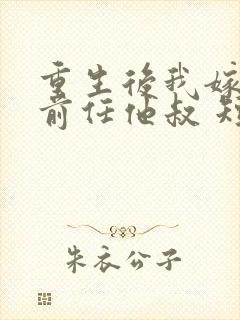 重生後我嫁
前任他叔 短
朱衣公子